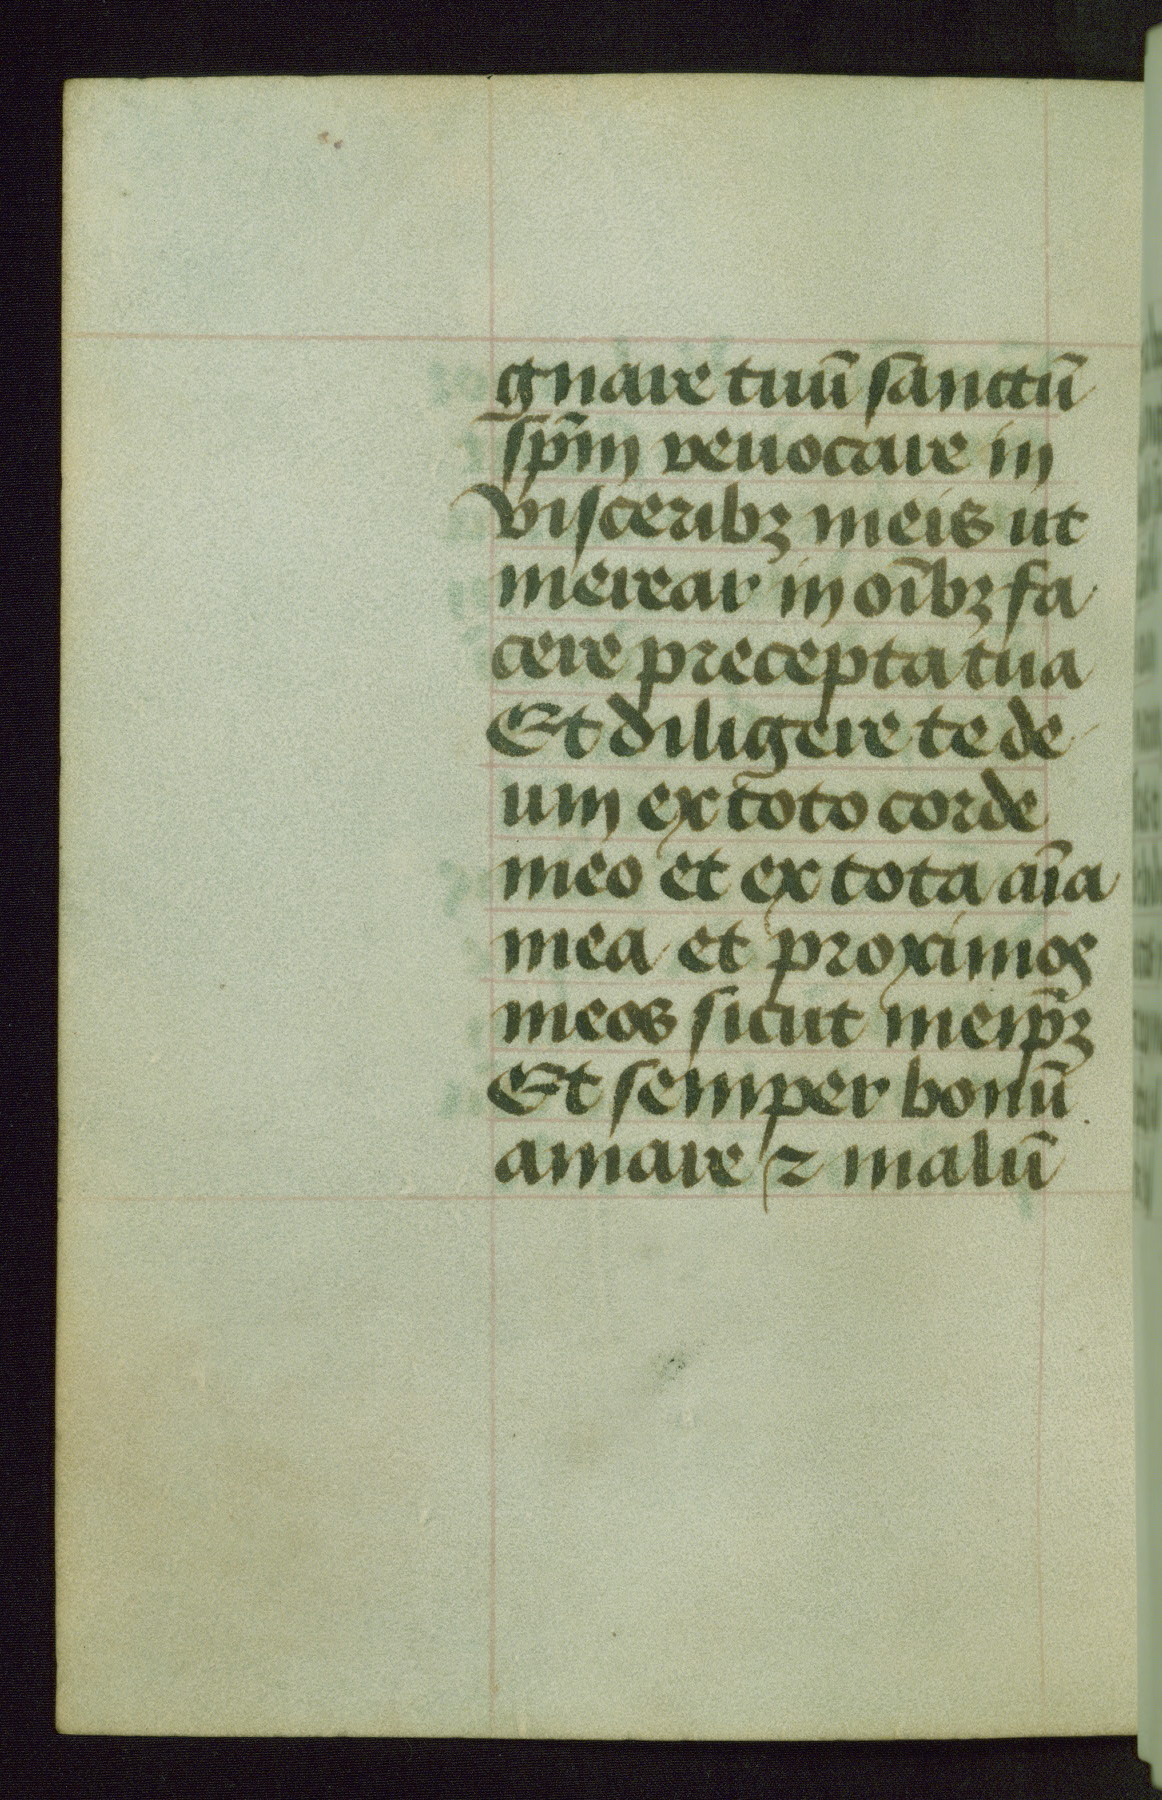 gnare tuū sanctū
sp̄m revocare in
visceribꝫ meis ut
merear in oībꝫ fa
cere precepta tua
Et diligere te de
um ex toto corde
meo et ex tota aīa
mea et proximos
meos sicut meip̄ꝫ
Et semper bonū
amare ⁊ malū